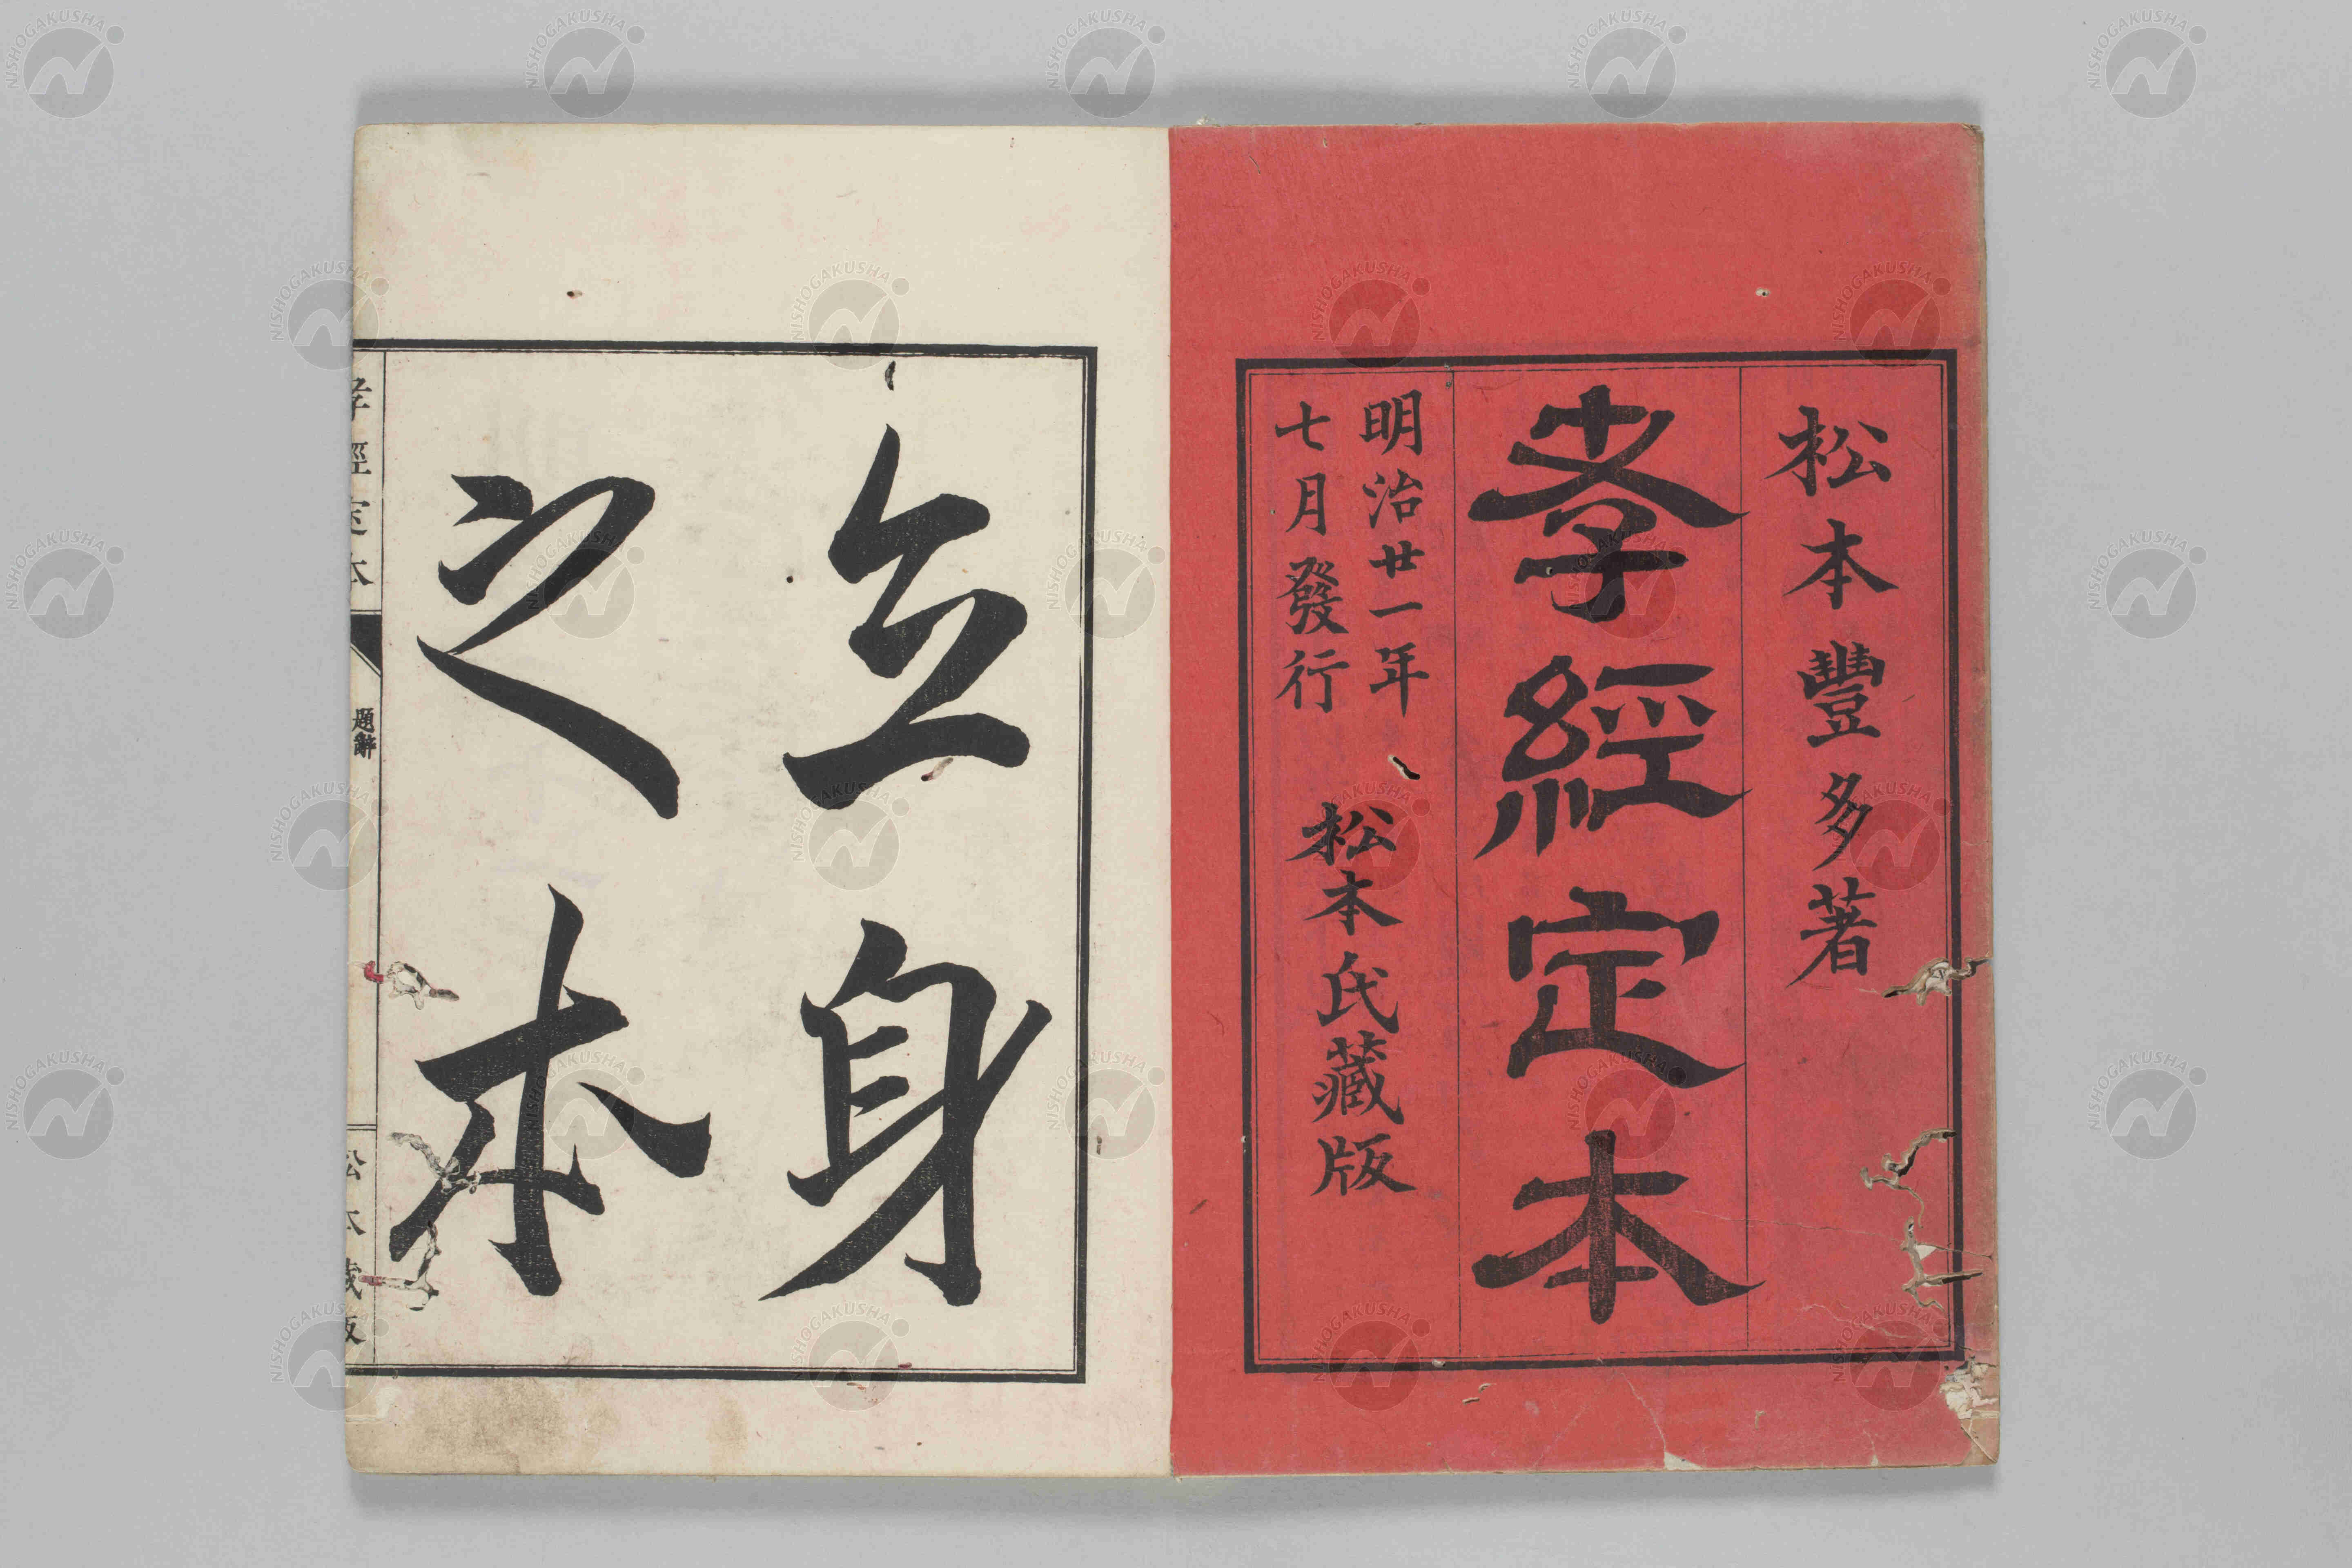 松本豐多著
孝經定本
明治廿一年
七月發行
松本氏藏版
立身
之本
孝經定本
題辭
松本藏版
NISHOGAKUSHA